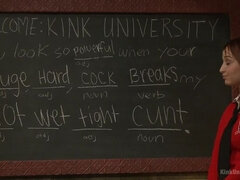 WELCOME: KINK UNIVERSITY
You look so powerful when your
adj
Huge Hard COCK Breaks my
adj adj noun verb
Hot wet tight cunt.
adj adj adj noun